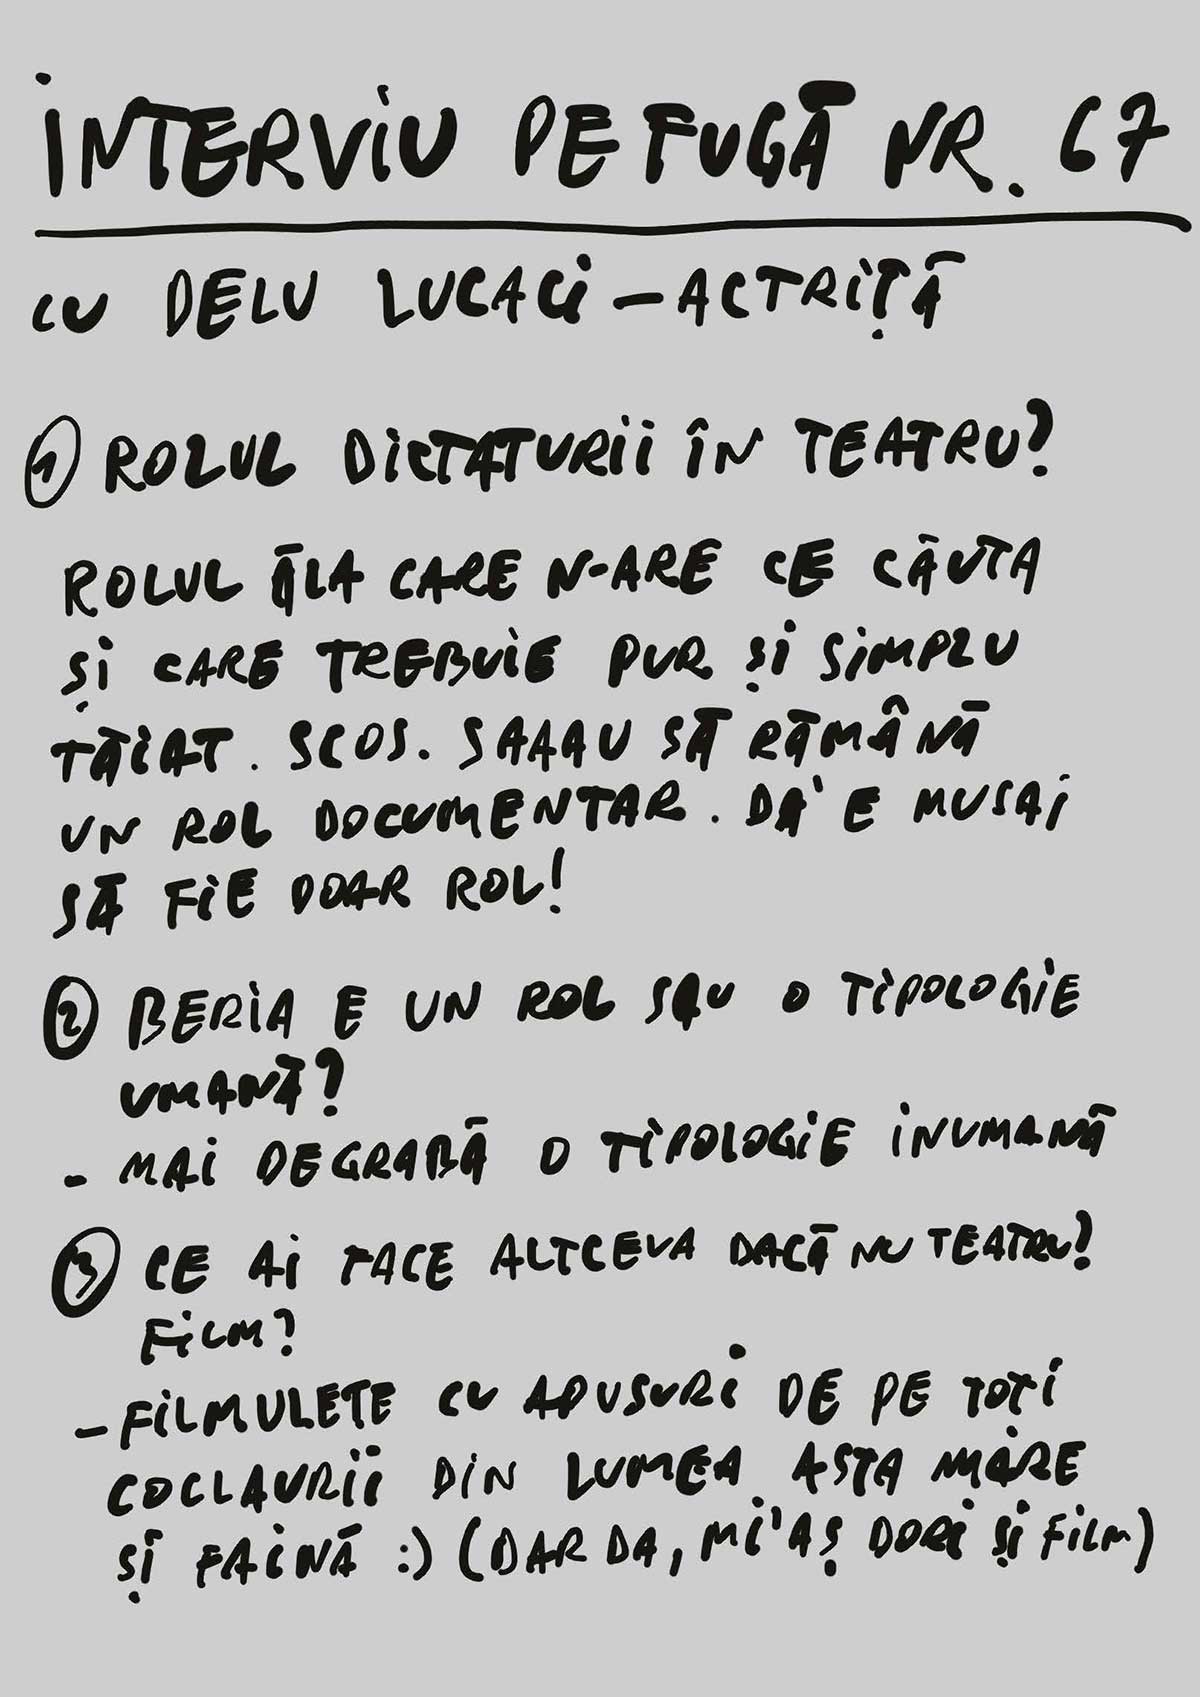 INTERVIU PE FUGĂ NR. 67
CU DELU LUCACI – ACTRIȚĂ
1 ROLUL DICTATURII ÎN TEATRU?
ROLUL ĂLA CARE N-ARE CE CĂUTA
ȘI CARE TREBUIE PUR ȘI SIMPLU
TĂIAT. SCOS. SAAAU SĂ RĂMÂNĂ
UN ROL DOCUMENTAR. DA' E MUSAI
SĂ FIE DOAR ROL!
2 BERIA E UN ROL SAU O TIPOLOGIE
UMANĂ?
- MAI DEGRABĂ O TIPOLOGIE INUMANĂ
3 CE AI FACE ALTCEVA DACĂ NU TEATRU?
FILM?
- FILMULEȚE CU APUSURI DE PE TOȚI
COCLAURII DIN LUMEA ASTA MARE
ȘI FAINĂ :) (DAR DA, MI'AȘ DORI ȘI FILM)